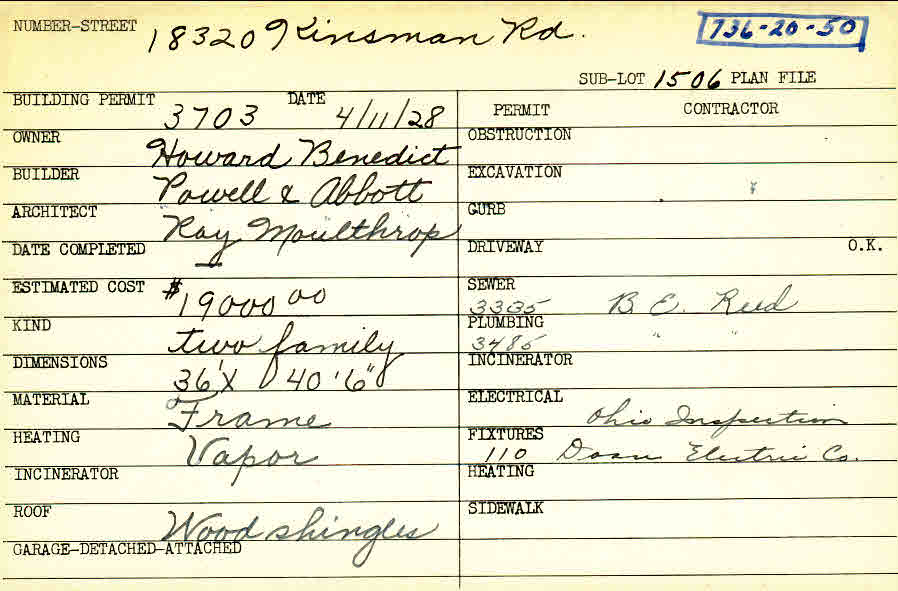 NUMBER-STREET 18320 Kinsman Rd. 736-20-50
SUB-LOT 1506 PLAN FILE
BUILDING PERMIT 3703 DATE 4/11/28
PERMIT CONTRACTOR
OWNER Howard Benedict
OBSTRUCTION
BUILDER Powell & Abbott
EXCAVATION
ARCHITECT Ray Moulthrop
CURB
DATE COMPLETED —
DRIVEWAY O.K.
ESTIMATED COST $19000 00
SEWER 3335 B. E. Reed
KIND two family
PLUMBING 3485 " "
DIMENSIONS 36' X 40'6"
INCINERATOR
MATERIAL Frame
ELECTRICAL Ohio Inspection
HEATING Vapor
FIXTURES 110 Doan Electric Co.
INCINERATOR
HEATING
ROOF Wood shingles
SIDEWALK
GARAGE-DETACHED-ATTACHED